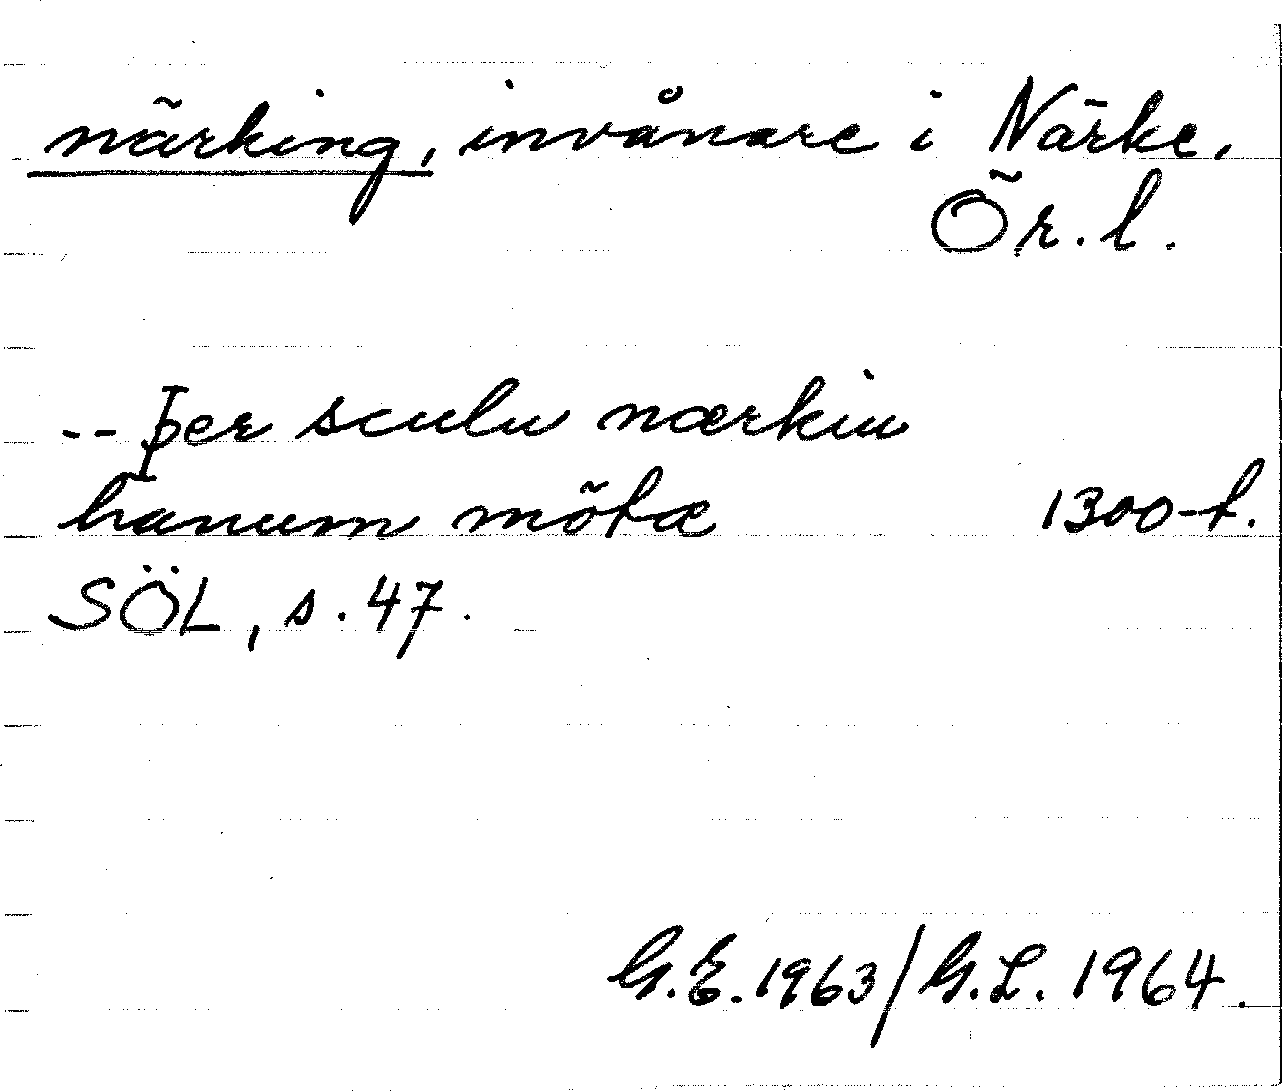 närking, invånare i Närke.
Ör. l.
-- þer sculu nærkiu
hanum mötæ 1300-t.
SÖL, s. 47.
G.E. 1963/G.L. 1964.